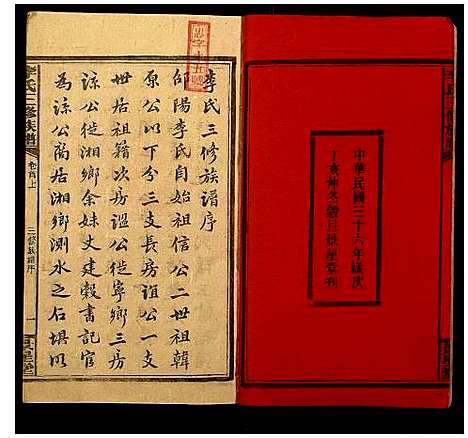 中華民國三十六年歲次
丁亥仲冬穀旦
李氏三修族譜序
邵陽李氏自始祖信公二世祖韓
原公以下分三支長房誼公一支
世居祖籍次房諡公徙寧鄉三房
諒公徙湘鄉余妹丈建穀書記官
為諒公裔居湘鄉測水之石堪以
李氏三修族譜
卷首上
三修族譜序
一